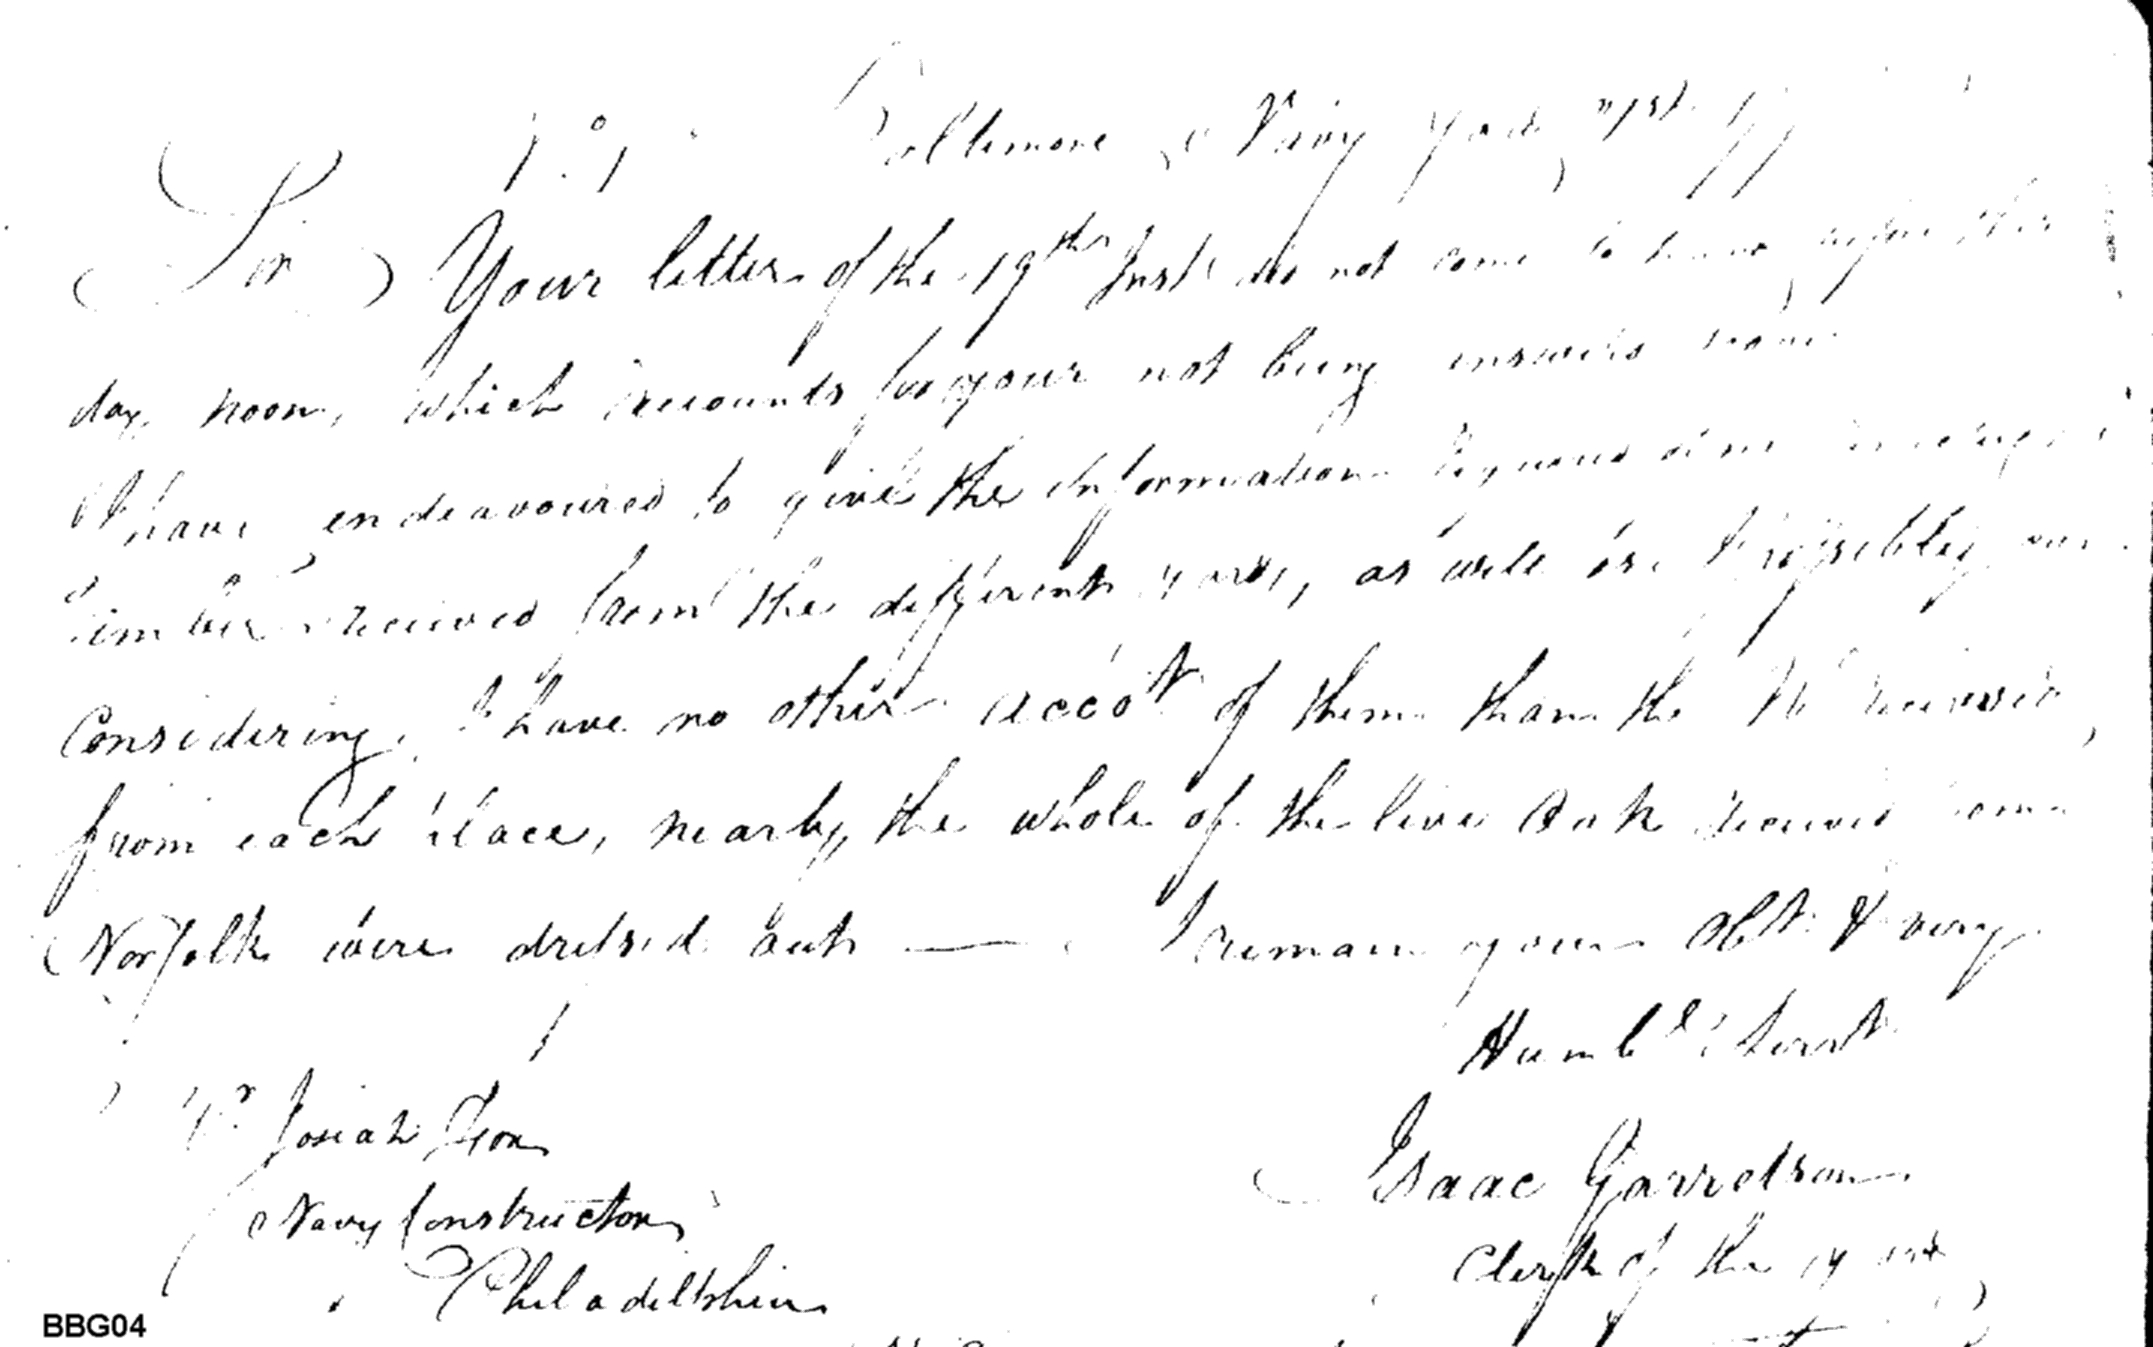 Baltimore Navy Yard,
Sir Your letter of the 19th Inst did not come to
day noon, which accounts for your not being answerd
I have endeavoured to give the information
Timber received from the different yards, as well as I possibly
Considering, I have no other accot of them than the No received
from each place, nearly the whole of the live Oak received from
Norfolk were dressed out — I remain your Obt. & very
Humble Servt
Mr Josiah Fox
Isaac Garretson
Navy Constructor
Clerk of the Yard
Philadelphia
BBG04